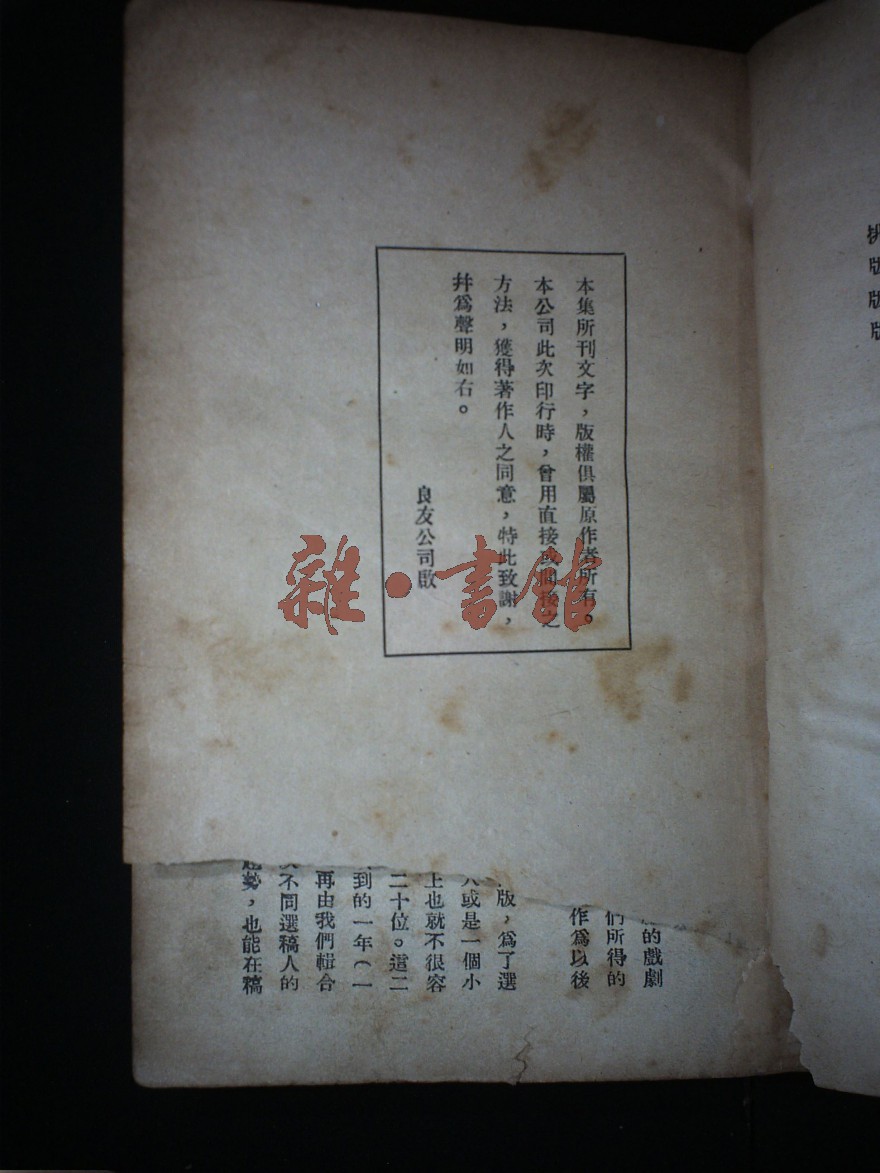 本集所刊文字，版權俱屬原作者所有。
本公司此次印行時，曾用直接或間接之
方法，獲得著作人之同意，特此致謝，
幷爲聲明如右。
良友公司啟
雜·書館
的戲劇
們所得的
作爲以後
版，爲了選
人或是一個小
上也就不很容
二十位。這二
到的一年（一
再由我們輯合
不同選稿人的
趨勢，也能在稿
版
版